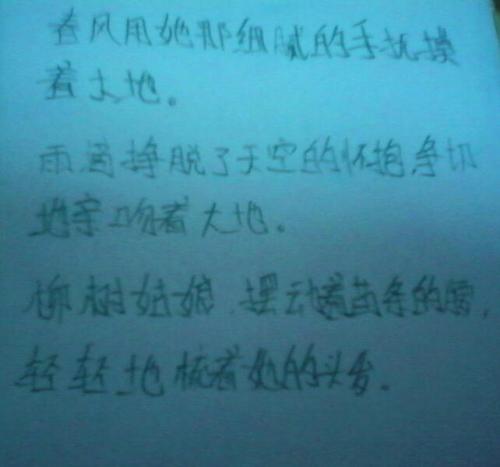 春风用她那细腻的手抚摸
着大地。
雨滴挣脱了天空的怀抱争切
地亲吻着大地。
柳树姑娘,摆动着苗条的腰,
轻轻地梳着她的头发。